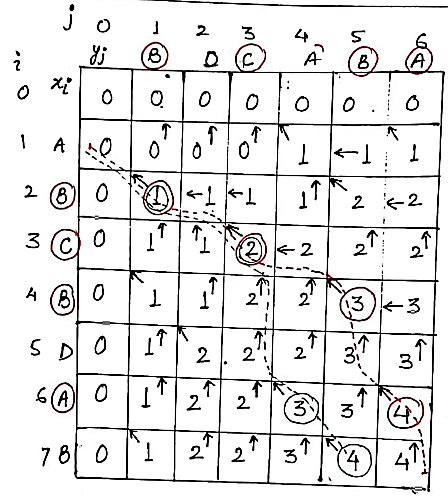 j 0 1 2 3 4 5 6
i yj B D C A B A
0 xi 0 0 0 0 0 0 0
1 A 0 0↑ 0↑ 0↑ ↖1 ←1 ↖1
2 B 0 ↖1 ←1 ←1 1↑ ↖2 ←2
3 C 0 1↑ ↑1 ↖2 ←2 2↑ 2↑
4 B 0 ↖1 1↑ 2↑ 2↑ ↖3 ←3
5 D 0 1↑ ↖2 2↑ 2↑ 3↑ 3↑
6 A 0 1↑ 2↑ 2↑ ↖3 3↑ ↖4
7 B 0 ↖1 2↑ 2↑ 3↑ ↖4 4↑